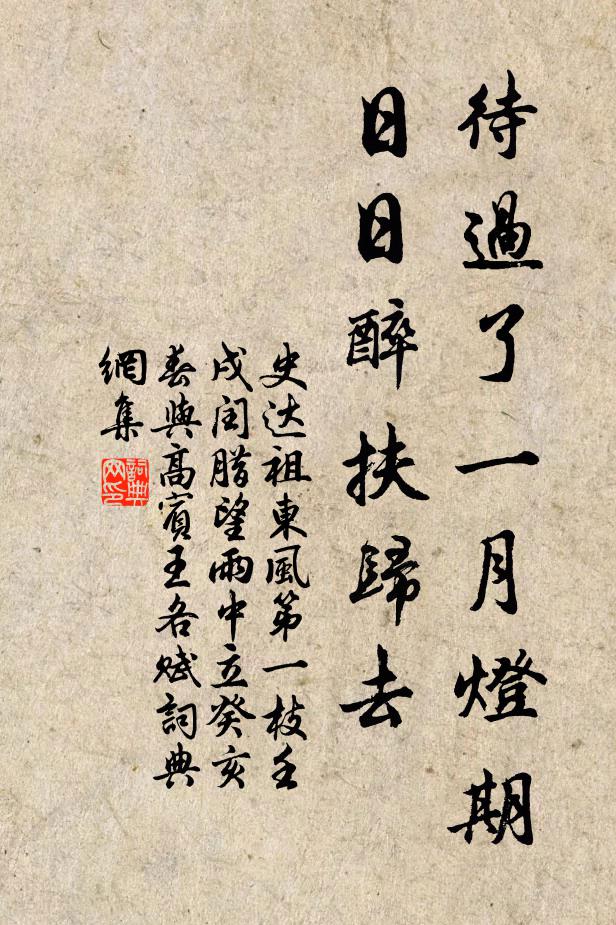 待過了一月燈期
日日醉扶歸去
史达祖東風第一枝壬
戌闰腊望雨中立癸亥
春與高賓王各赋詞典
網集
詞典
网印